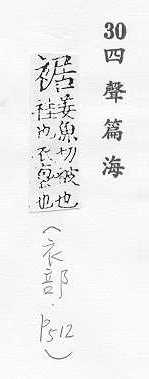 30四聲篇海
裾
姜魚切被也
袿也衣裒也
(衣部·P512)